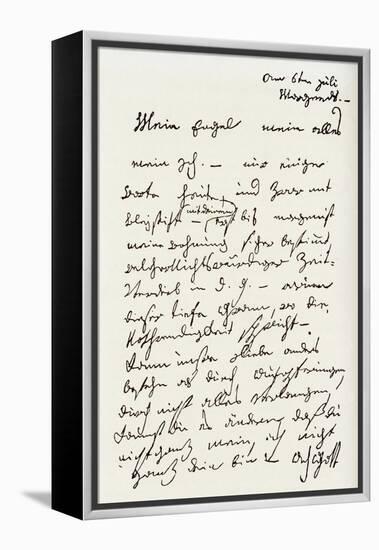 am 6ten juli
Morgends. –
Mein Engel mein alles
mein Ich. – nur einige
Worte heute, und zwar mit
Bleystift – (mit deinem) – erst bis morgen ist
meine Wohnung sicher bestimmt
welcher nichtswürdiger Zeit-
Verderb in d. g. – warum
dieser tiefe Gram, wo die
Nothwendigkeit spricht –
Kann unsre Liebe anders
bestehn als durch Aufopferungen,
durch nicht alles verlangen,
kannst du es ändern, daß du
nicht ganz mein, ich nicht
ganz dein bin – Ach Gott